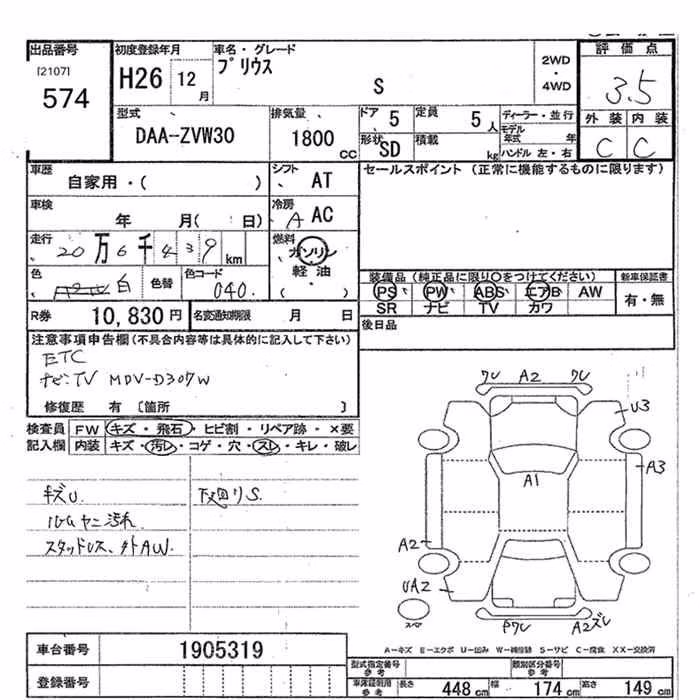 出品番号 初度登録年月 車名・グレード 評価点
[2107] プリウス 2WD
574 H26 12月 S ・ 3.5
4WD
型式 排気量 ドア 5 定員 5人 ディーラー・並行 外装 内装
DAA-ZVW30 1800cc 形状 SD 積載 kg モデル年式 年 C C
ハンドル 左・右
車歴 シフト セールスポイント (正常に機能するものに限ります)
自家用・( ) AT
車検 冷房
年 月( 日) A AC
走行 燃料
20万6千439km ガソリン
色 色替 色コード 軽油 装備品 (純正品に限り○をつけてください) 新車保証書
白 040 ( ) PS PW ABS エアB AW 有・無
R券 10,830円 名変通知期限 月 日 SR ナビ TV カワ
後日品
注意事項申告欄(不具合内容等は具体的に記入して下さい)
ETC
ナビ・TV MDV-D307W
修復歴 有 [箇所 ]
検査員 FW キズ・飛石・ヒビ割・リペア跡・×要
記入欄 内装 キズ・汚レ・コゲ・穴・スレ・キレ・破レ
キズU. 下廻りS.
ルームヤニ汚れ.
スタッドレス、外AW.
ワレ A2 ワレ
U3
A3
A1
A2
UA2
Pワレ A2ズレ
A-キズ E-エクボ U-凹み W-補修跡 S-サビ C-腐食 XX-交換済
車台番号 1905319
登録番号
型式指定番号参考 類別区分番号参考
車体証明用参考 長さ 448cm 幅 174cm 高さ 149cm